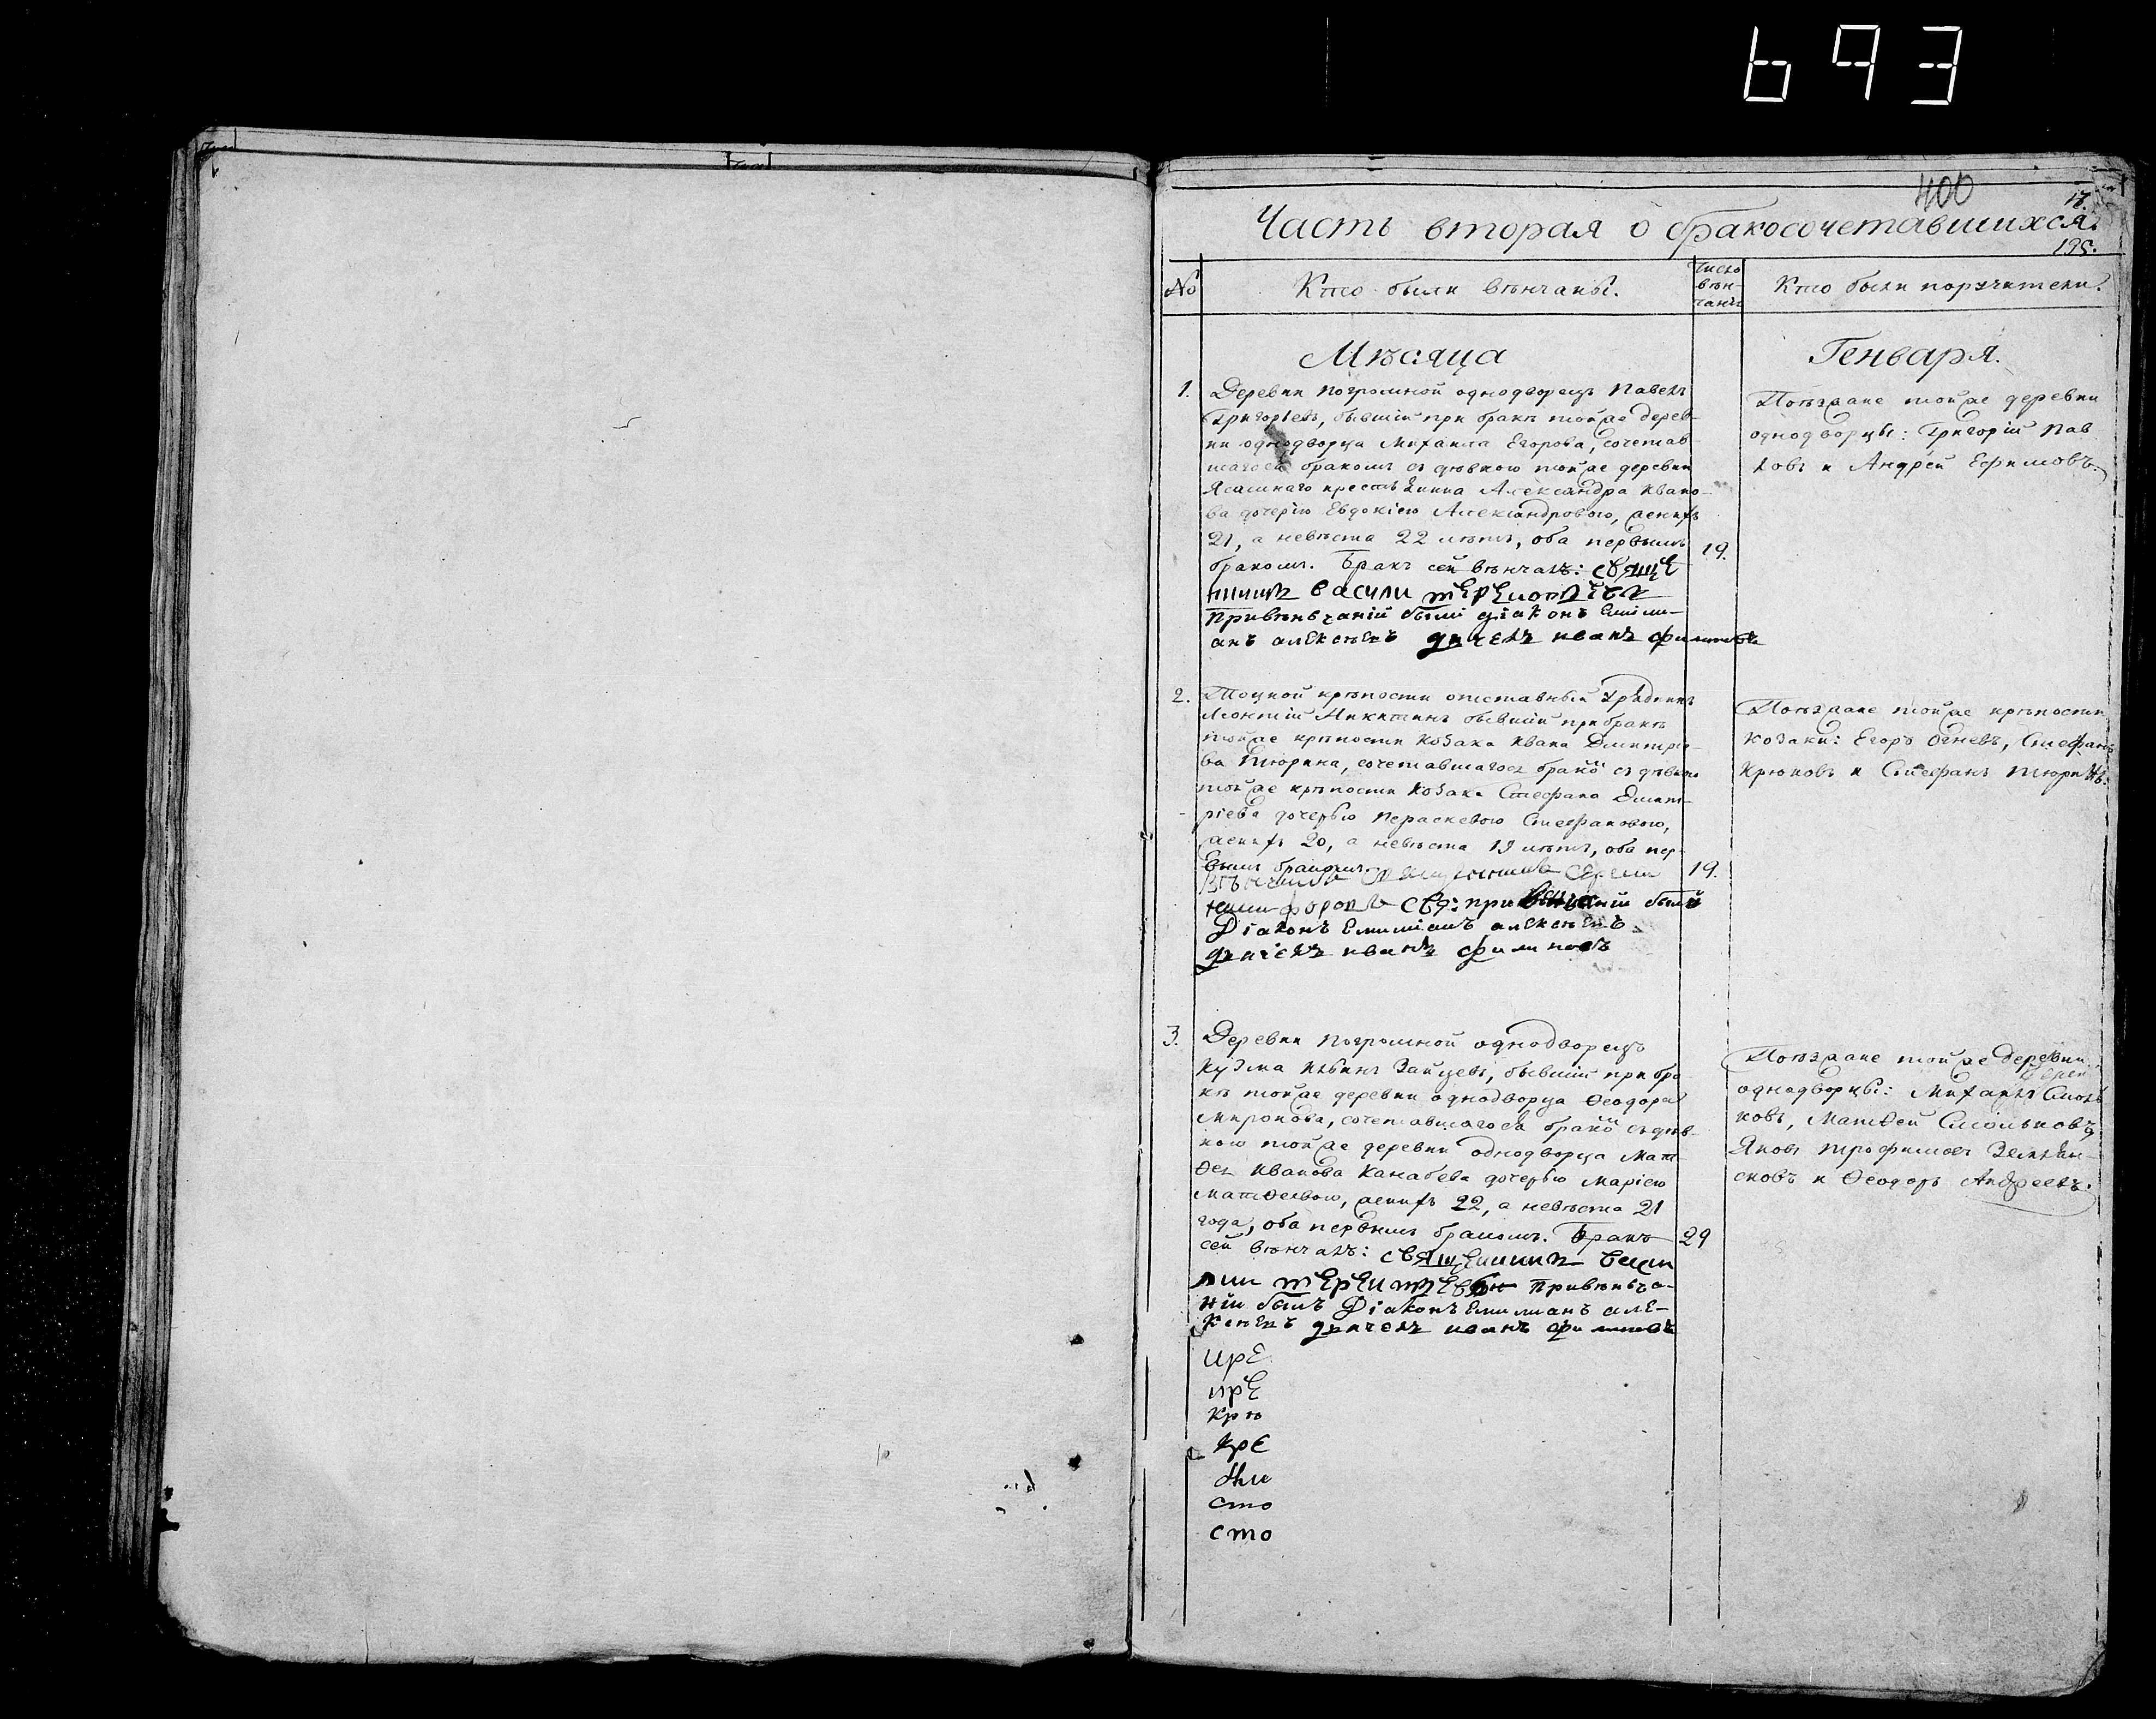 693
400
17.
Часть вторая о бракосочетавшихся.
195.
№
Кто были вѣнчаны.
Число
вѣн-
чанъ
Кто были поручители.
Мѣсяца
Генваря.
1.
Деревни Погромной однодворецъ Павелъ
Григорьевъ, бывшій при бракѣ тойже дерев-
ни однодворца Михаила Егорова, сочетав-
шагося бракомъ съ дѣвкою тойже деревни
Ясашнаго крестьянина Александра Ивано-
ва дочерію Евдокіею Александровою, женихъ
21, а невѣста 22 лѣтъ, оба первымъ
бракомъ. Бракъ сей вѣнчалъ: свяще
нникъ васили
привѣнчаніи былі діаконъ Емили-
анъ алексѣевъ дьячекъ иванъ филиповъ
19.
Поѣзжане тойже деревни
однодворцы: Григорій Пав-
ловъ и Андрей Ефимовъ.
2.
Тоцкой крѣпости отставный Урядникъ
Леонтій Никитинъ бывшій при бракѣ
тойже крѣпости Козака Ивана Дмитріе-
ва Тюрина, сочетавшагося брако съ дѣвкою
тойже крѣпости Козака Стефана Дмит-
ріева дочерью Параскевою Стефановою,
женихъ 20, а невѣста 19 лѣтъ, оба пер-
вымъ бракомъ.
Вѣнчалъ священникъ
никифоровъ свя: при вѣнчаніи былі
Діаконъ Емилианъ алексѣевъ
дьячекъ иванъ филиповъ
19.
Поѣзжане тойже крѣпости
козаки: Егоръ Огневъ, Стефанъ
Крюковъ и Стефанъ Тюринъ.
3.
Деревни Погромной однодворецъ
Кузма Ильинъ Зайцевъ, бывшій при бра-
кѣ тойже деревни однодворца Ѳеодора
Миронова, сочетавшагося брако съ дѣв-
кою тойже деревни однодворца Мат-
ѳея Иванова Канабева дочерью Маріею
Матѳеевою, женихъ 22, а невѣста 21
года, оба первымъ бракомъ. Бракъ
сей вѣнчалъ: священникъ васи
лии привѣнча-
ніи былъ Діаконъ Емилианъ але-
ксѣевъ дьячекъ иванъ филиповъ
29
Поѣзжане тойже деревни
однодворцы: Михаилъ Смоль
ковъ, Матѳей Смольковъ,
Яковъ Трофимовъ Землян-
сковъ и Ѳеодоръ Андреевъ.
прЕ
прЕ
Крю
КрЕ
сто
сто